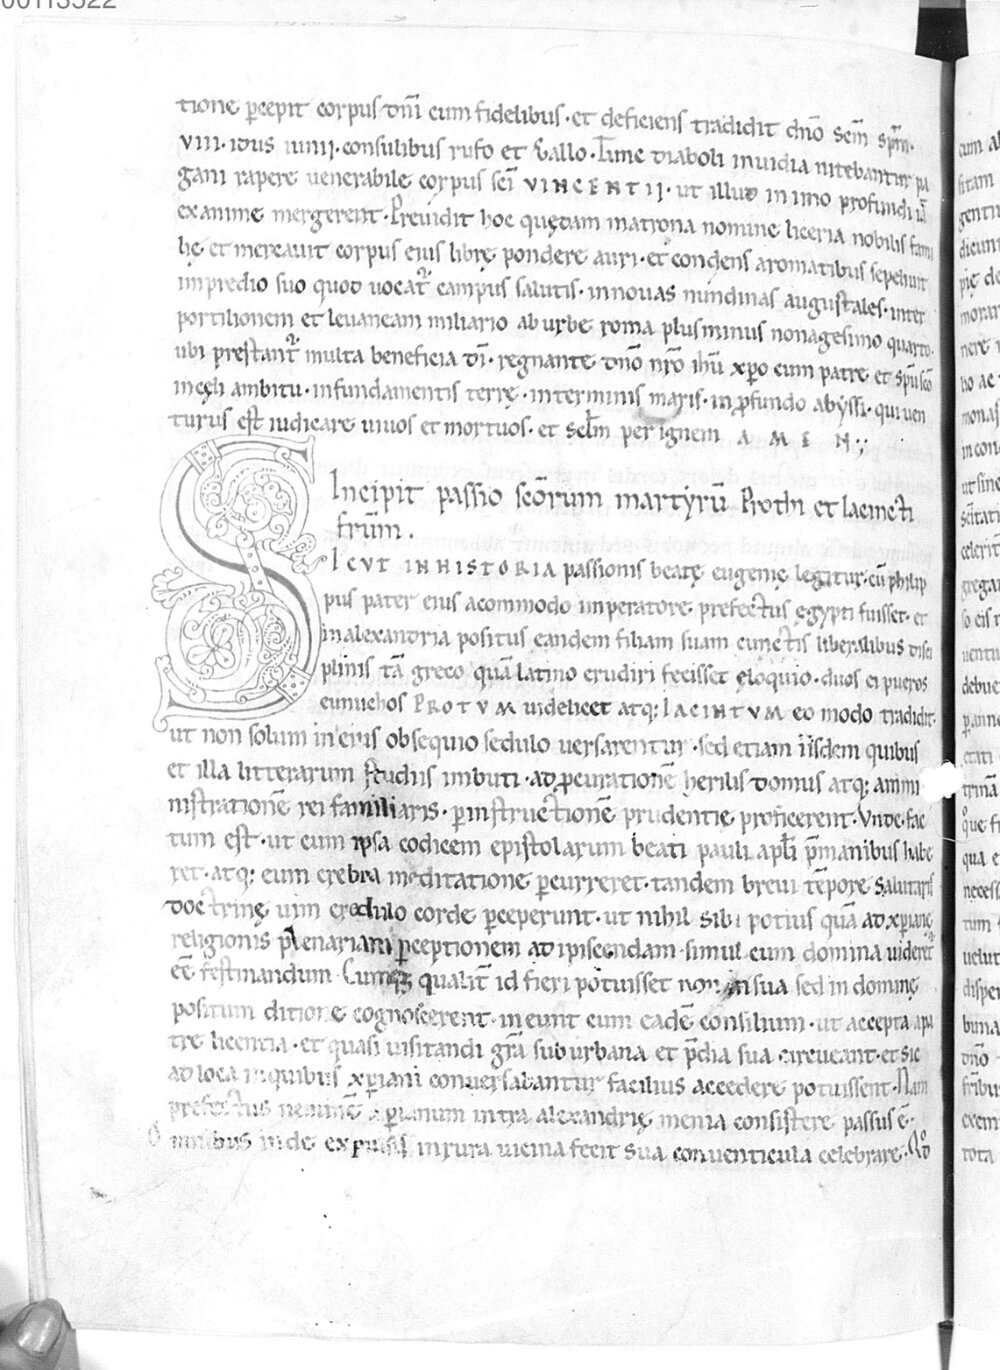 00113522
tione p̄cepit corpus dn̄i cum fidelibus· et deficiens tradidit dn̄o sc̄m sp̄m·
VIII· idus iunii· consulibus rufo et Gallo· Tunc diaboli inuidia nitebantur pa
gani rapere uenerabile corpus sc̄i VINCENTII· ut illud in imo profundi iā
exanime mergerent· Preuidit hoc quędam matrona nomine liceria nobilis fami
lię et mercauit corpus eius librę pondere auri· et condens aromatibus sepeliuit
in predio suo quod uocat᷑ campus salutis· in nouas nundinas augustales· inter
portilionem et leuaneam miliario ab urbe roma plus minus nonagesimo quarto·
ubi prestant᷑ multa beneficia dī· regnante dn̄o nr̄o ihū xp̄o cum patre et sp̄u sc̄o
in cęli ambitu· in fundamentis terrę· in terminis maris· in p̄fundo abyssi· qui uen
turus est iudicare uiuos et mortuos· et sc̄lm per ignem AMEN;;
Incipit passio sc̄orum martyrū Prothi et Iacincti
fr̄um.
SICUT IN HISTORIA passionis beatę eugenię legitur· cū philip
pus pater eius a commodo imperatore prefectus egypti fuisset· et
in alexandria positus eandem filiam suam cunctis liberalibus disci
plinis tā greco quā latino erudiri fecisset eloquio· duos ei pueros
eunuchos PROTUM uidelicet atq; IACINTUM eo modo tradidit·
ut non solum in eius obsequio sedulo uersarentur· sed etiam iisdem quibus
et illa litterarum studiis imbuti· ad p̄curationē herilis domus atq; ammi
nistrationē rei familiaris· p̄ instructionē prudentie proficerent· Unde fac
tum est· ut cum ipsa codicem epistolarum beati pauli apl̄i p̄ manibus habe
ret· atq; cum crebra meditatione p̄curreret· tandem breui tēpore salutaris
doctrinę uim credulo corde p̄ceperunt· ut nihil sibi potius quā ad xp̄ianę
religionis plenariam p̄ceptionem adipiscendam· simul cum domina uideret᷑
eē festinandum· Cumq; qualit̄ id fieri potuisset non in sua sed in dominę
positum ditione cognoscerent· ineunt cum eadē consilium· ut accepta a pa
tre licentia· et quasi uisitandi gr̄a suburbana et p̄dia sua circueant· et sic
ad loca in quibus xp̄iani conuersabantur facilius accedere potuissent· Nam
prefectus neminē xp̄ianum intra alexandrię menia consistere passus ē·
Omnibus inde expulsis in rura uicina fecit sua conuenticula celebrare·